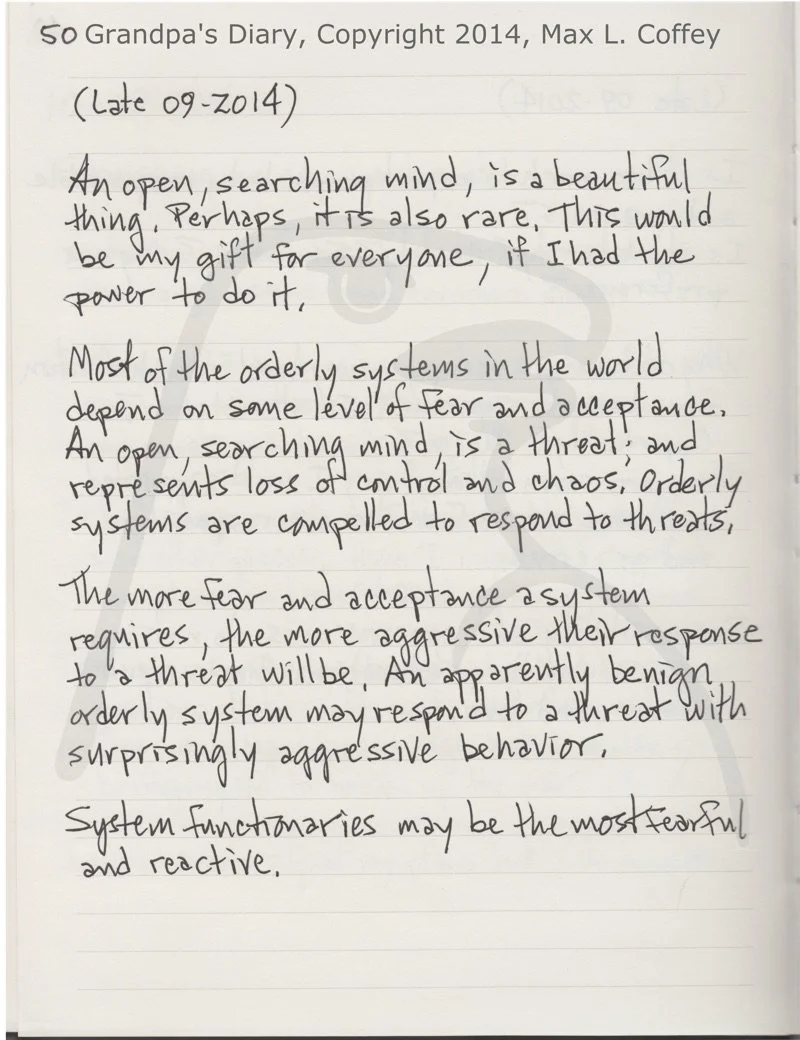 50 Grandpa's Diary, Copyright 2014, Max L. Coffey
(Late 09-2014)
An open, searching mind, is a beautiful
thing. Perhaps, it is also rare. This would
be my gift for everyone, if I had the
power to do it.
Most of the orderly systems in the world
depend on some level of fear and acceptance.
An open, searching mind, is a threat; and
represents loss of control and chaos. Orderly
systems are compelled to respond to threats.
The more fear and acceptance a system
requires, the more aggressive their response
to a threat will be. An apparently benign
orderly system may respond to a threat with
surprisingly aggressive behavior.
System functionaries may be the most fearful
and reactive.